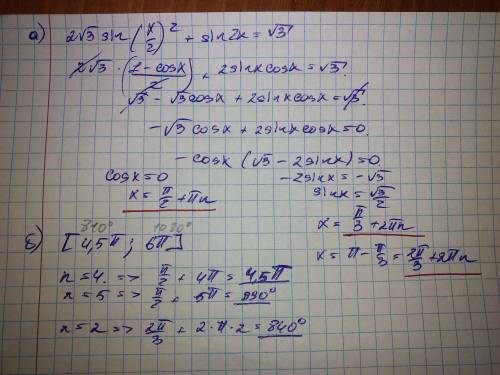 а) 2√3 sin(x/2)² + sin2x = √3
2√3 · (1 - cosx)/2 + 2sinxcosx = √3.
√3 - √3cosx + 2sinxcosx = √3.
-√3cosx + 2sinxcosx = 0.
-cosx (√3 - 2sinx) = 0
cosx = 0
x = π/2 + πn
-2sinx = -√3
sinx = √3/2
x = π/3 + 2πn
x = π - π/3 = 2π/3 + 2πn
810° 1080°
б) [4,5π; 6π]
n = 4. => π/2 + 4π = 4,5π
n = 5 => π/2 + 5π = 990°
n = 2 => 2π/3 + 2·π·2 = 840°